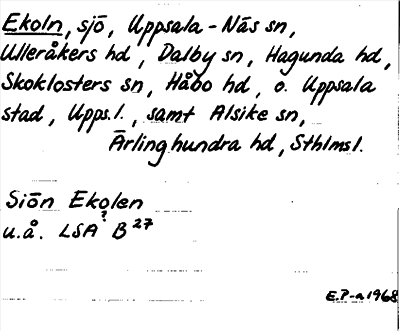 Ekoln, sjö, Uppsala-Näs sn,
Ulleråkers hd, Dalby sn, Hagunda hd,
Skoklosters sn, Håbo hd, o. Uppsala
stad, Upps.l., samt Alsike sn,
Ärlinghundra hd, Sthlmsl.
Siön Ekolen
?
u.å. LSA B 27
E.P-a 1968